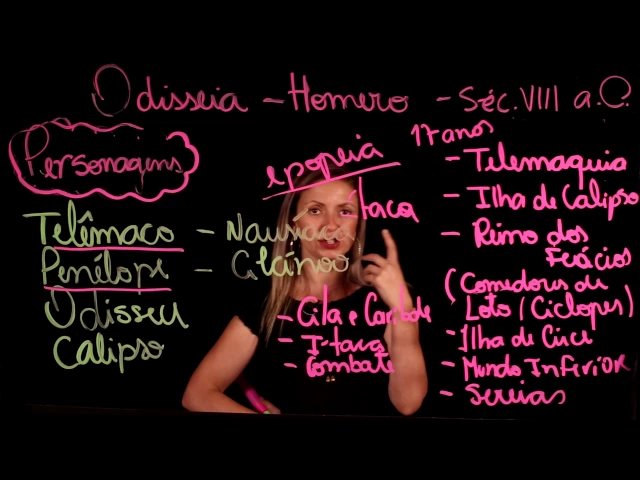 Odisseia - Homero - Séc. VIII a.C.
Personagens
epopeia
17 anos
Ítaca
Telêmaco - Nausícaa
Penélope -
Odisseu
Calipso
- Cila e Caribde
- Ítaca
- Combate
- Telemaquia
- Ilha de Calipso
- Reino dos
Feácios
(Comedores de
Loto (Ciclopes)
- Ilha de Circe
- Mundo Inferior
- Sereias